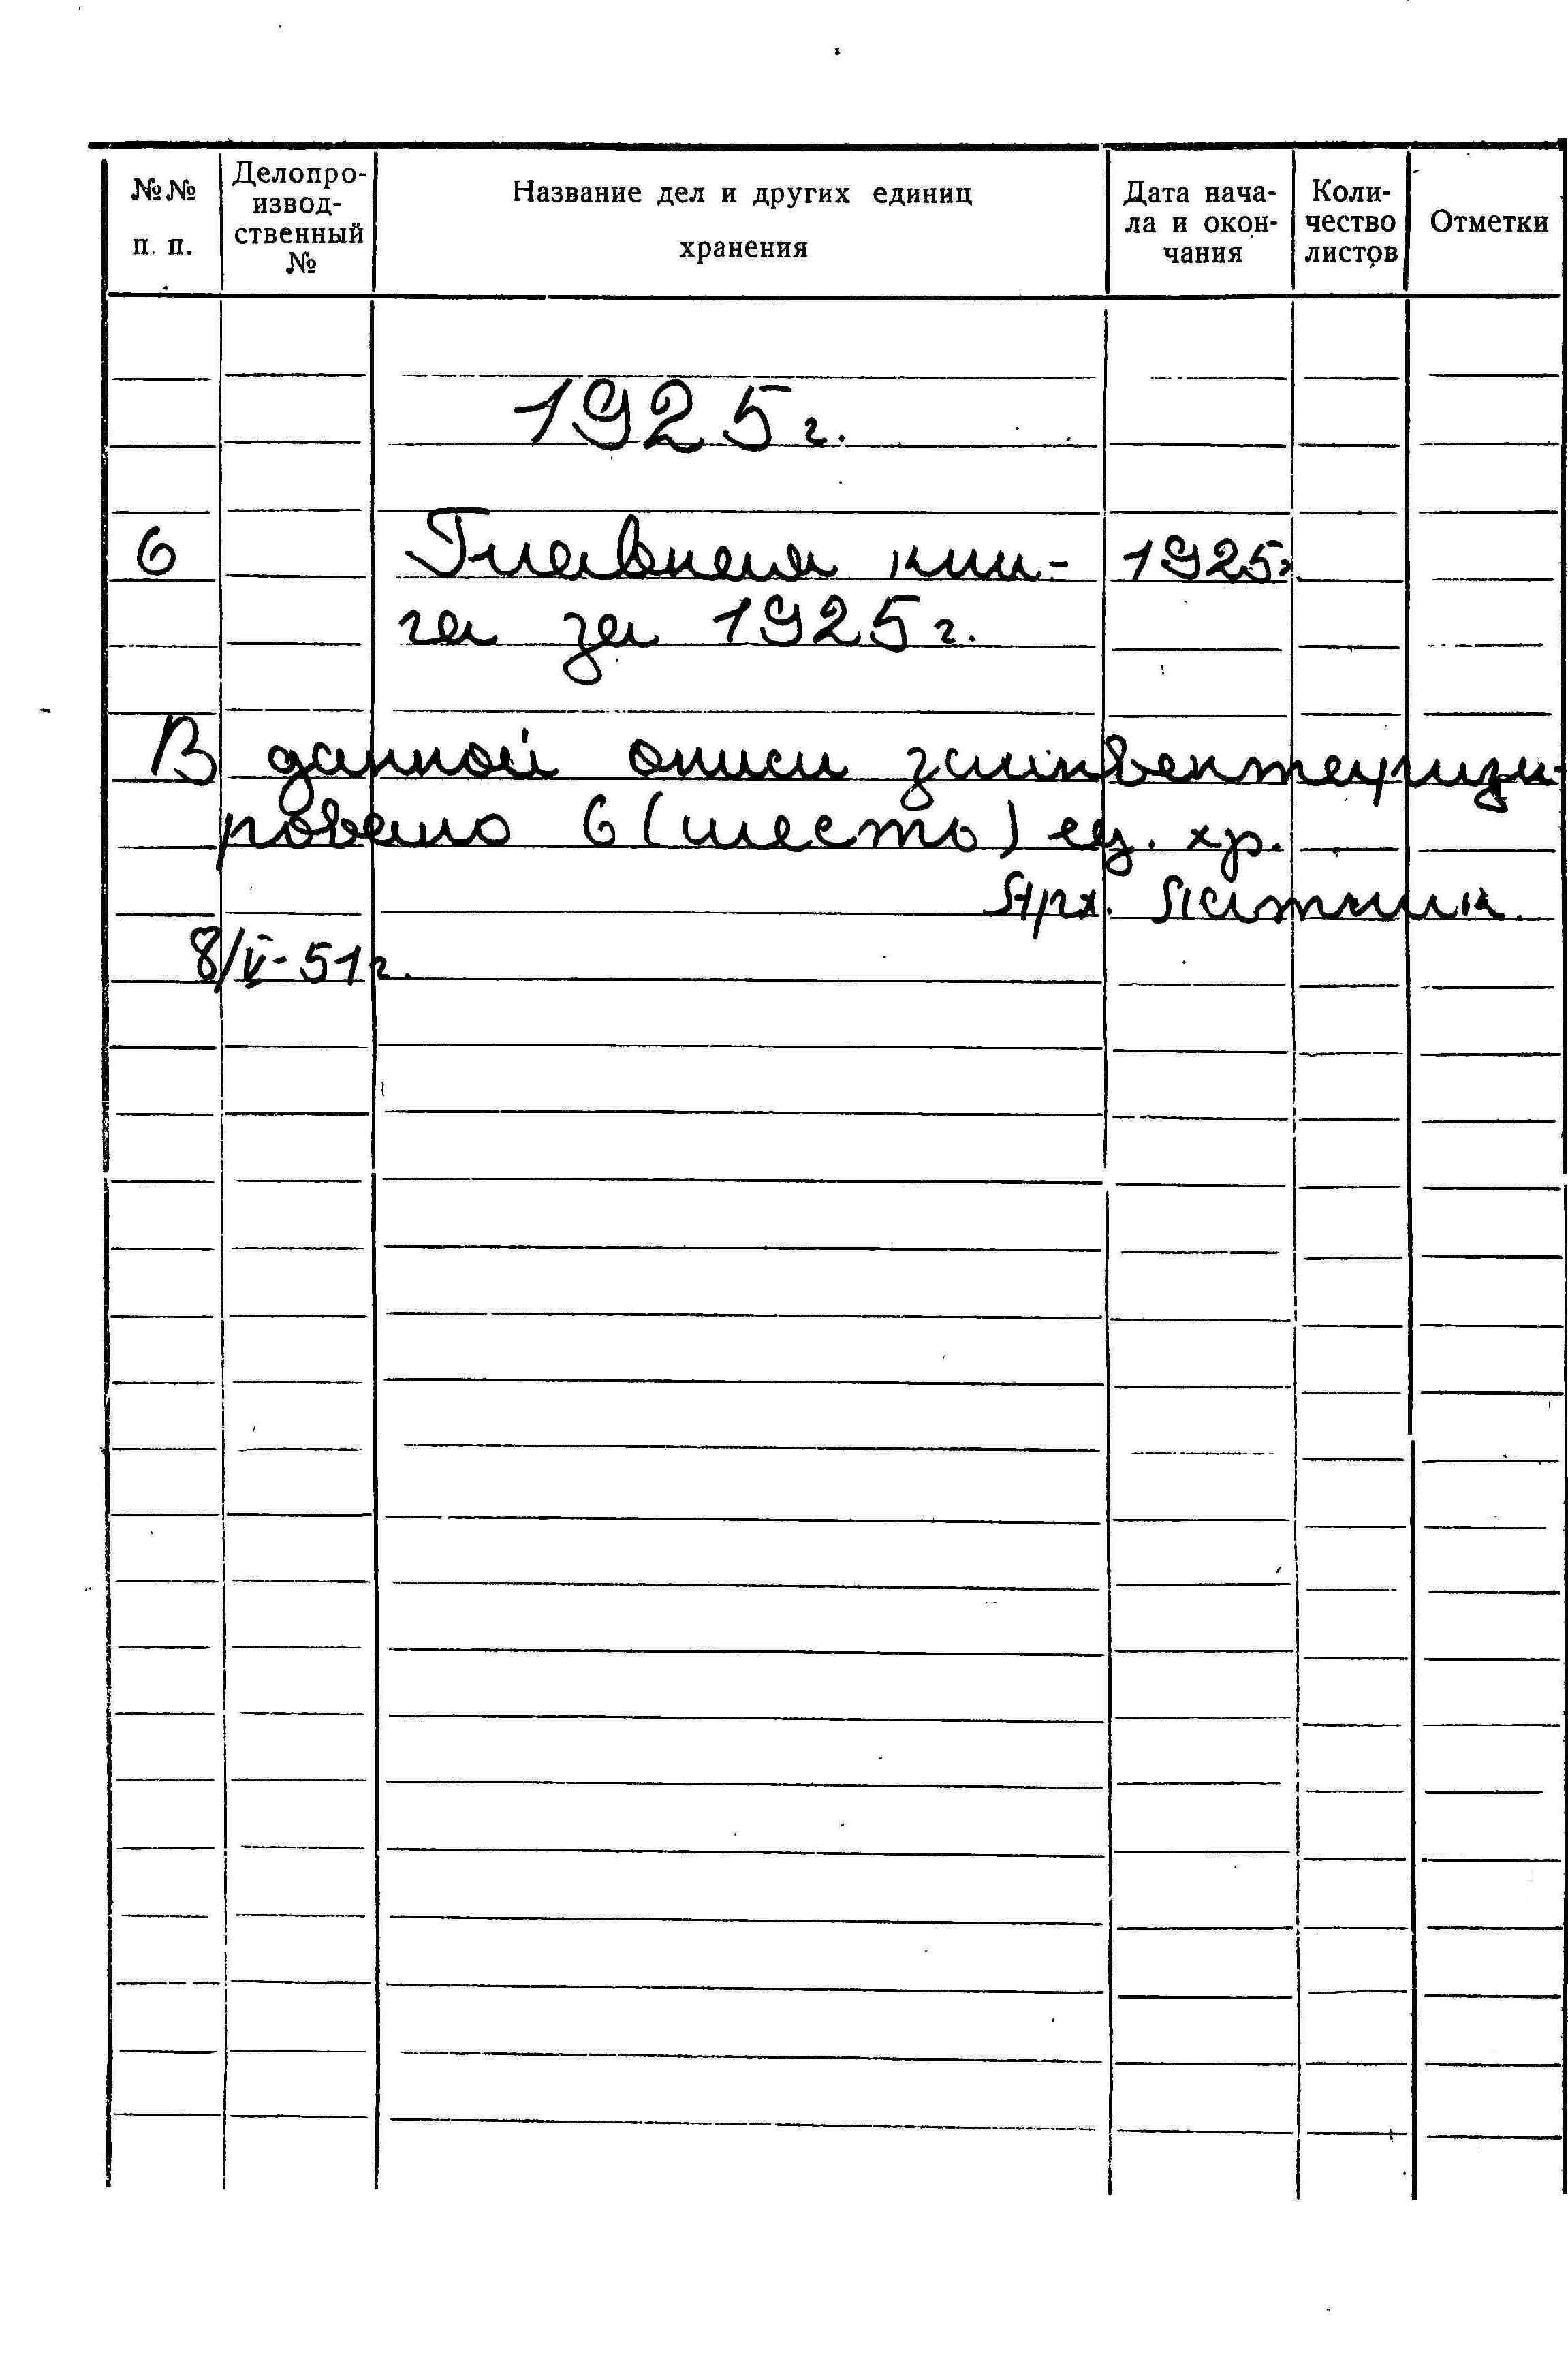 №№ п. п.
Делопро-
извод-
ственный
№
Название дел и других единиц
хранения
Дата нача-
ла и окон-
чания
Коли-
чество
листов
Отметки
1925 г.
6 Главная кни- 1925г
га за 1925 г.
В данной описи заинвентаризи-
ровано 6 (шесть) ед. хр.
Арх.
8/V-51 г.